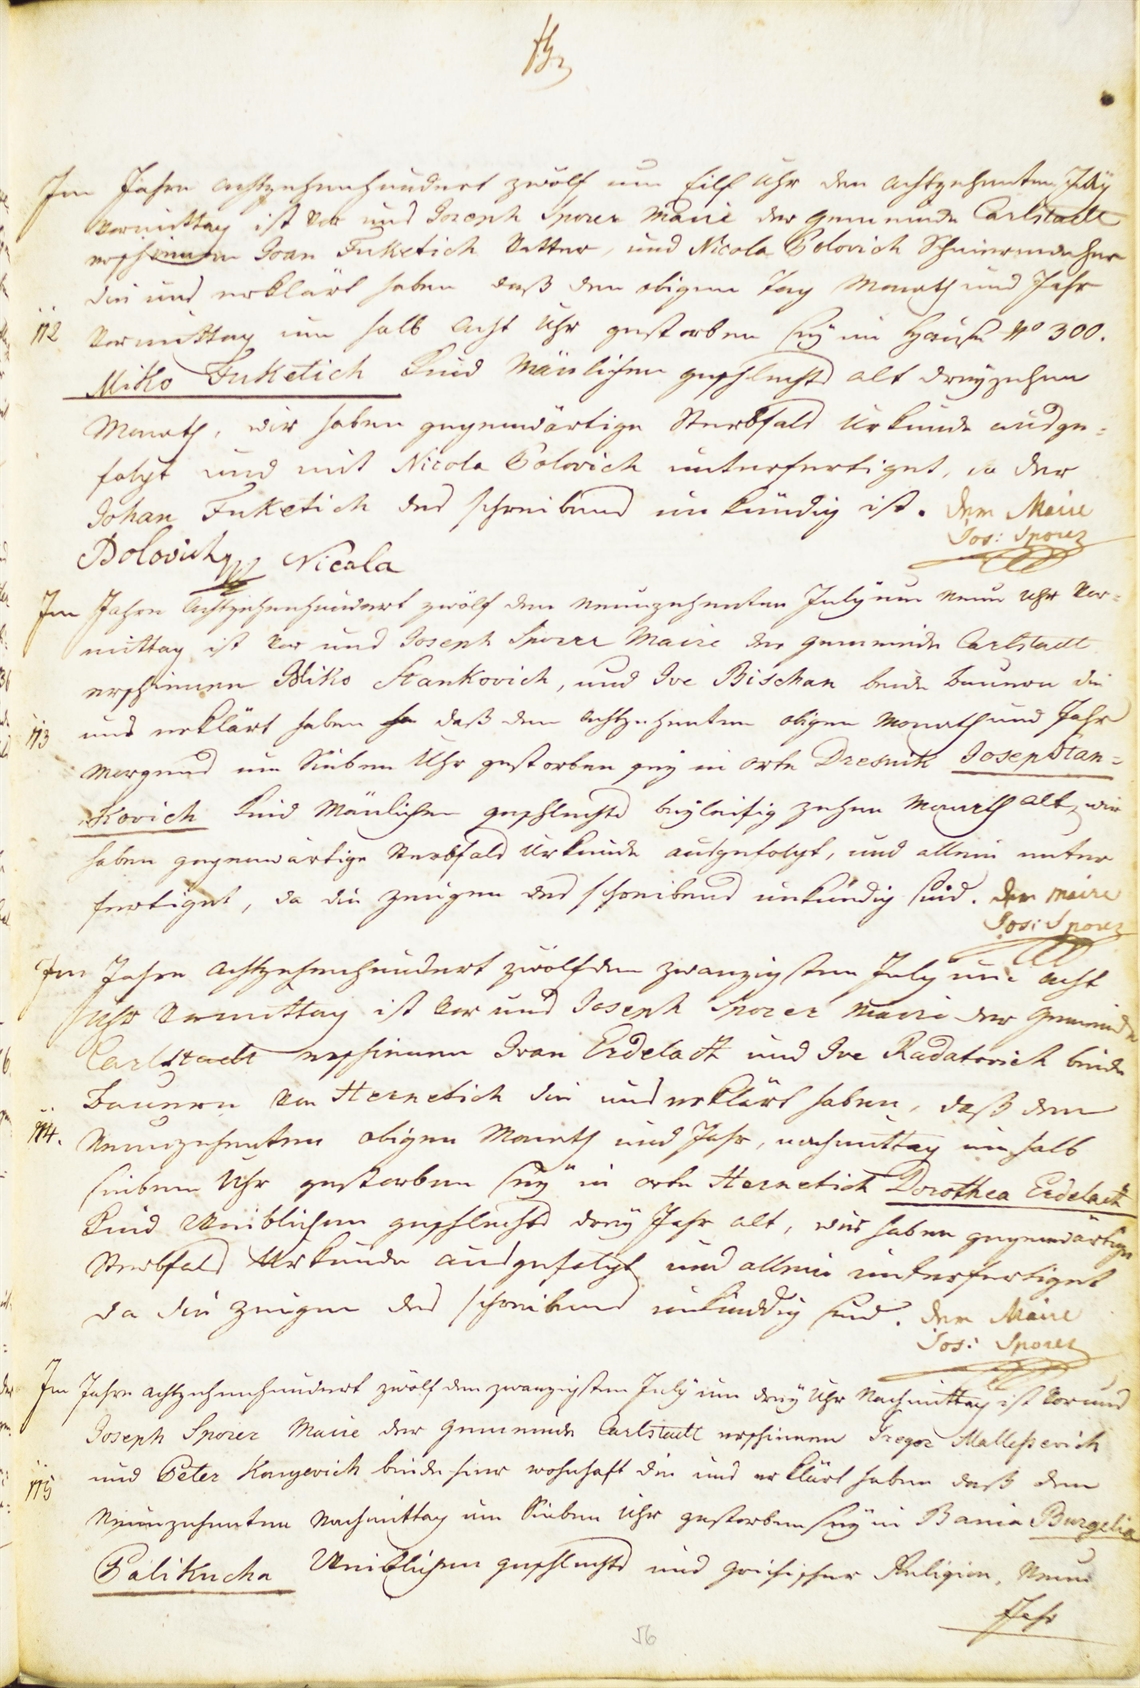 Im Jahre achtzehenhundert zwölf um Eilf Uhr den achtzehenten July
Vormittag ist vor uns Joseph Sporer Maire der Gemeinde Carlstadt
erschienen Joan Fuketich Vatter, und Nicola Bolovich Schneiermacher
die uns erklärt haben daß den obigen Tag Monath und Jahr
112 Vormittag um halb Acht Uhr gestorben seÿ im Hause No 300.
Miko Fuketich Kind Mänlichen geschlechts alt dreyzehen
Monath, wir haben gegenwärtige Sterbfals Urkunde ausge=
folgt und mit Nicola Bolovich unterfertiget, da der
Johan Fuketich des schreibens unkündig ist. Der Maire
Jos: Sporer
Bolovich Nicola
Im Jahre Achtzehenhundert zwölf den Neunzehenten July um Neun Uhr Vor=
mittag ist vor uns Joseph Sporer Maire der Gemeinde Carlstadt
erschienen Miko Stankovich, und Ive Bischan beide Bauern die
113 uns erklärt haben daß den Achtzehenten obigen Monath und Jahr
Morgens um Sieben Uhr gestorben seÿ in orte Dresnik Josep Stan=
kovich Kind Mänlichen geschlechts beyleifig zehen Monath alt, wir
haben gegenwärtige Sterbfals Urkunde ausgefolgt, und allein unter
fertiget, da die zeugen des schreibens unkündig sind. Der Maire
Jos: Sporer
Im Jahre Achtzehenhundert zwölf den zwanzigsten July um acht
Uhr Vormittag ist vor uns Joseph Sporer Maire der Gemeinde
Carlstadt erschienen Ivan Erdelacz und Ive Radatovich beide
Bauern von Hernetich die uns erklärt haben, daß den
114. Neunzehenten obigen Monath und Jahr, nachmittag um halb
sieben Uhr gestorben seÿ in orte Hernetich Dorothea Erdelacz
Kind Weiblichen geschlechts dreÿ Jahr alt, wir haben gegenwärtige
Sterbfals Urkunde ausgefolgt und allein unterfertiget
da die zeugen des schreibens unkündig sind. Der Maire
Jos: Sporer
Im Jahre achtzehenhundert zwölf den zwanzigsten July um dreÿ Uhr Nachmittag ist vor uns
Joseph Sporer Maire der Gemeinde Carlstadt erschienen Gregor Malleßevich
und Peter Konyevich beide hier wohnhaft die uns erklärt haben daß den
115 Neunzehenten Nachmittag um Sieben Uhr gestorben seÿ in Bania Burgelia
Palikucha Weiblichen geschlechts und grichischer Religion, Neun
Jahr
56